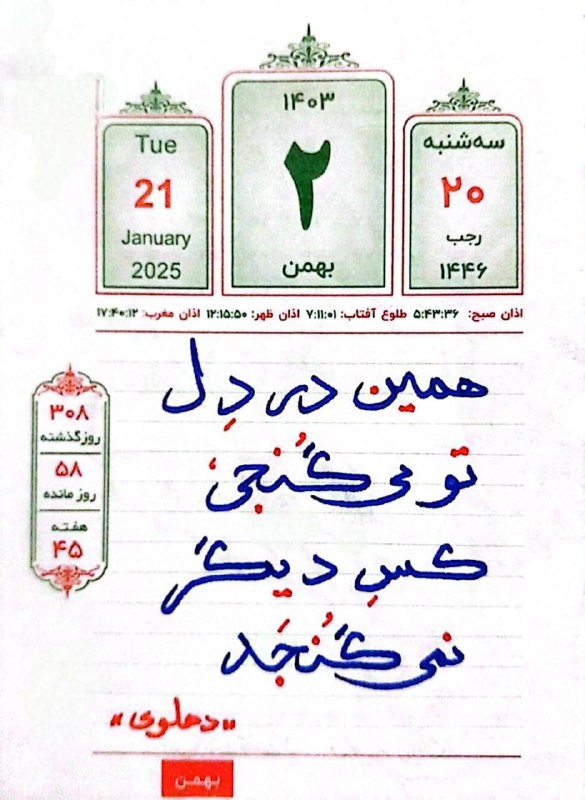 ۱۴۰۳
۲
بهمن
سه‌شنبه
۲۰
رجب
۱۴۴۶
Tue
21
January
2025
اذان صبح: ۵:۴۳:۳۶ طلوع آفتاب: ۷:۱۱:۰۱ اذان ظهر: ۱۲:۱۵:۵۰ اذان مغرب: ۱۷:۴۰:۱۲
۳۰۸
روز گذشته
۵۸
روز مانده
هفته
۴۵
همین در دِل
تو می گُنجی،
کسِ دیگر
نمی گُنجَد
«دهلوی»
بهمن